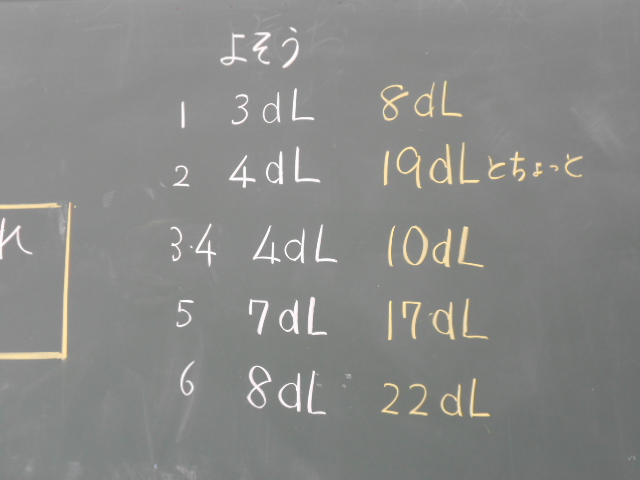 よそう
1 3dL 8dL
2 4dL 19dLとちょっと
3・4 4dL 10dL
れ
5 7dL 17dL
6 8dL 22dL